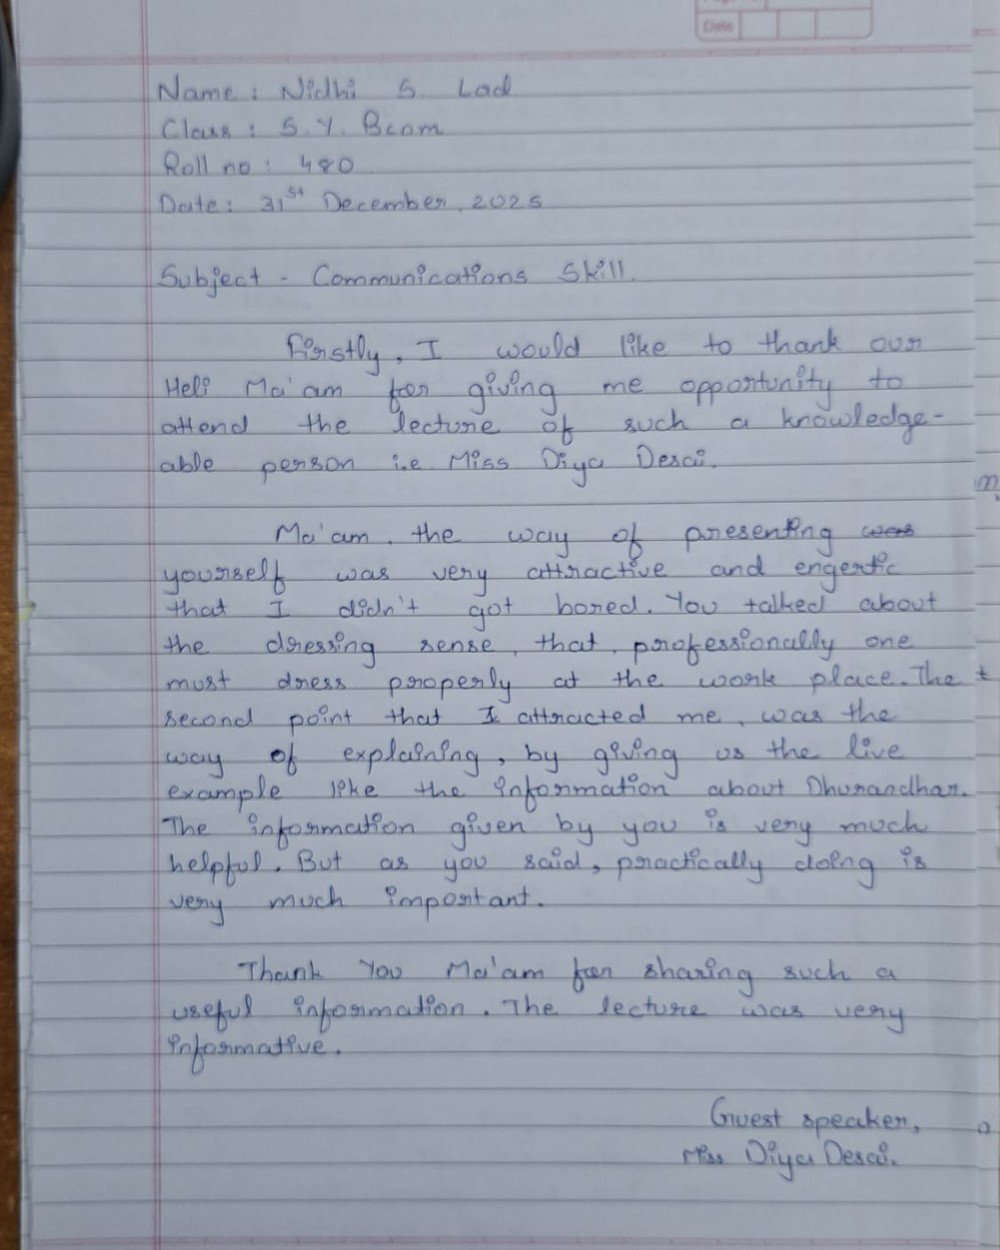 Date
Name : Nidhi S Lad
Class : S.Y. Bcom
Roll no : 480
Date : 31st December, 2025
Subject - Communications Skill.
Firstly, I would like to thank our
Heli Ma'am for giving me opportunity to
attend the lecture of such a knowledge-
able person i.e. Miss Diya Desai.
Ma'am, the way of presenting was
yourself was very attractive and engertic
that I didn't got bored. You talked about
the dressing sense, that, professionally one
must dress properly at the work place. The
second point that I attracted me, was the
way of explaining, by giving us the live
example like the information about Dhurandhar.
The information given by you is very much
helpful. But as you said, practically doing is
very much important.
Thank You Ma'am for sharing such a
useful information. The lecture was very
informative.
Guest speaker,
Miss Diya Desai.